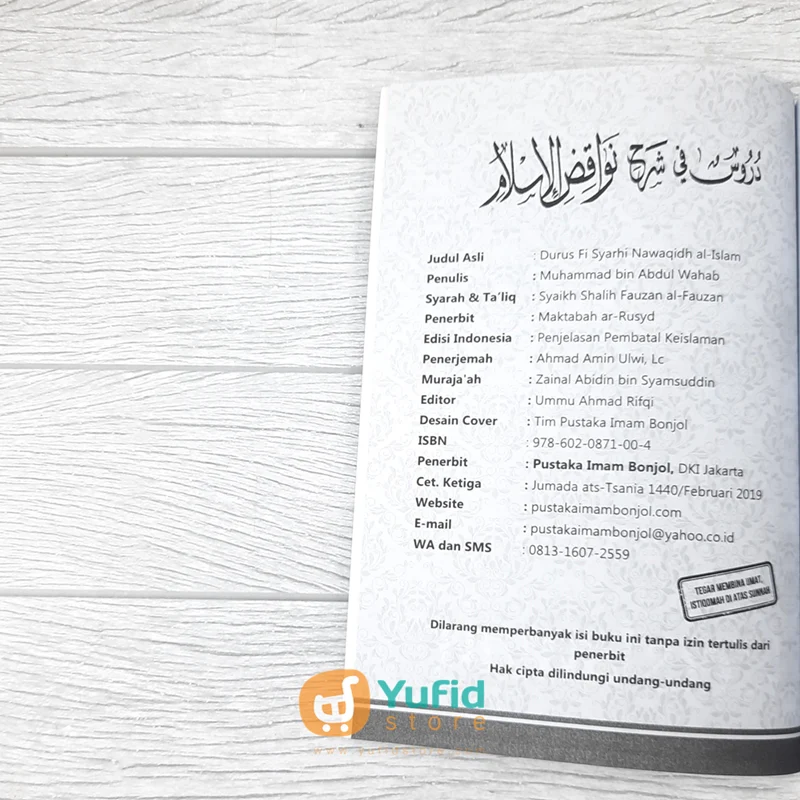 دُرُوسٌ فِي شَرْحِ نَوَاقِضِ الإِسْلَامِ
Judul Asli : Durus Fi Syarhi Nawaqidh al-Islam
Penulis : Muhammad bin Abdul Wahab
Syarah & Ta'liq : Syaikh Shalih Fauzan al-Fauzan
Penerbit : Maktabah ar-Rusyd
Edisi Indonesia : Penjelasan Pembatal Keislaman
Penerjemah : Ahmad Amin Ulwi, Lc
Muraja'ah : Zainal Abidin bin Syamsuddin
Editor : Ummu Ahmad Rifqi
Desain Cover : Tim Pustaka Imam Bonjol
ISBN : 978-602-0871-00-4
Penerbit : Pustaka Imam Bonjol, DKI Jakarta
Cet. Ketiga : Jumada ats-Tsania 1440/Februari 2019
Website : pustakaimambonjol.com
E-mail : pustakaimambonjol@yahoo.co.id
WA dan SMS : 0813-1607-2559
TEGAR MEMBINA UMAT,
ISTIQOMAH DI ATAS SUNNAH
Dilarang memperbanyak isi buku ini tanpa izin tertulis dari
penerbit
Hak cipta dilindungi undang-undang
Yufid
store